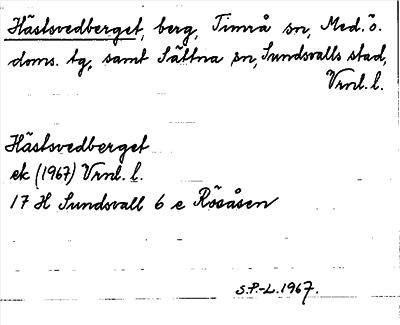 Hästsvedberget, berg, Timrå sn, Med. ö.
doms. tg, samt Sättna sn, Sundsvalls stad,
Vrnl. l.
Hästsvedberget
ek (1967) Vrnl. l.
17 H Sundsvall 6 e Rösåsen
S.P.-L. 1967.